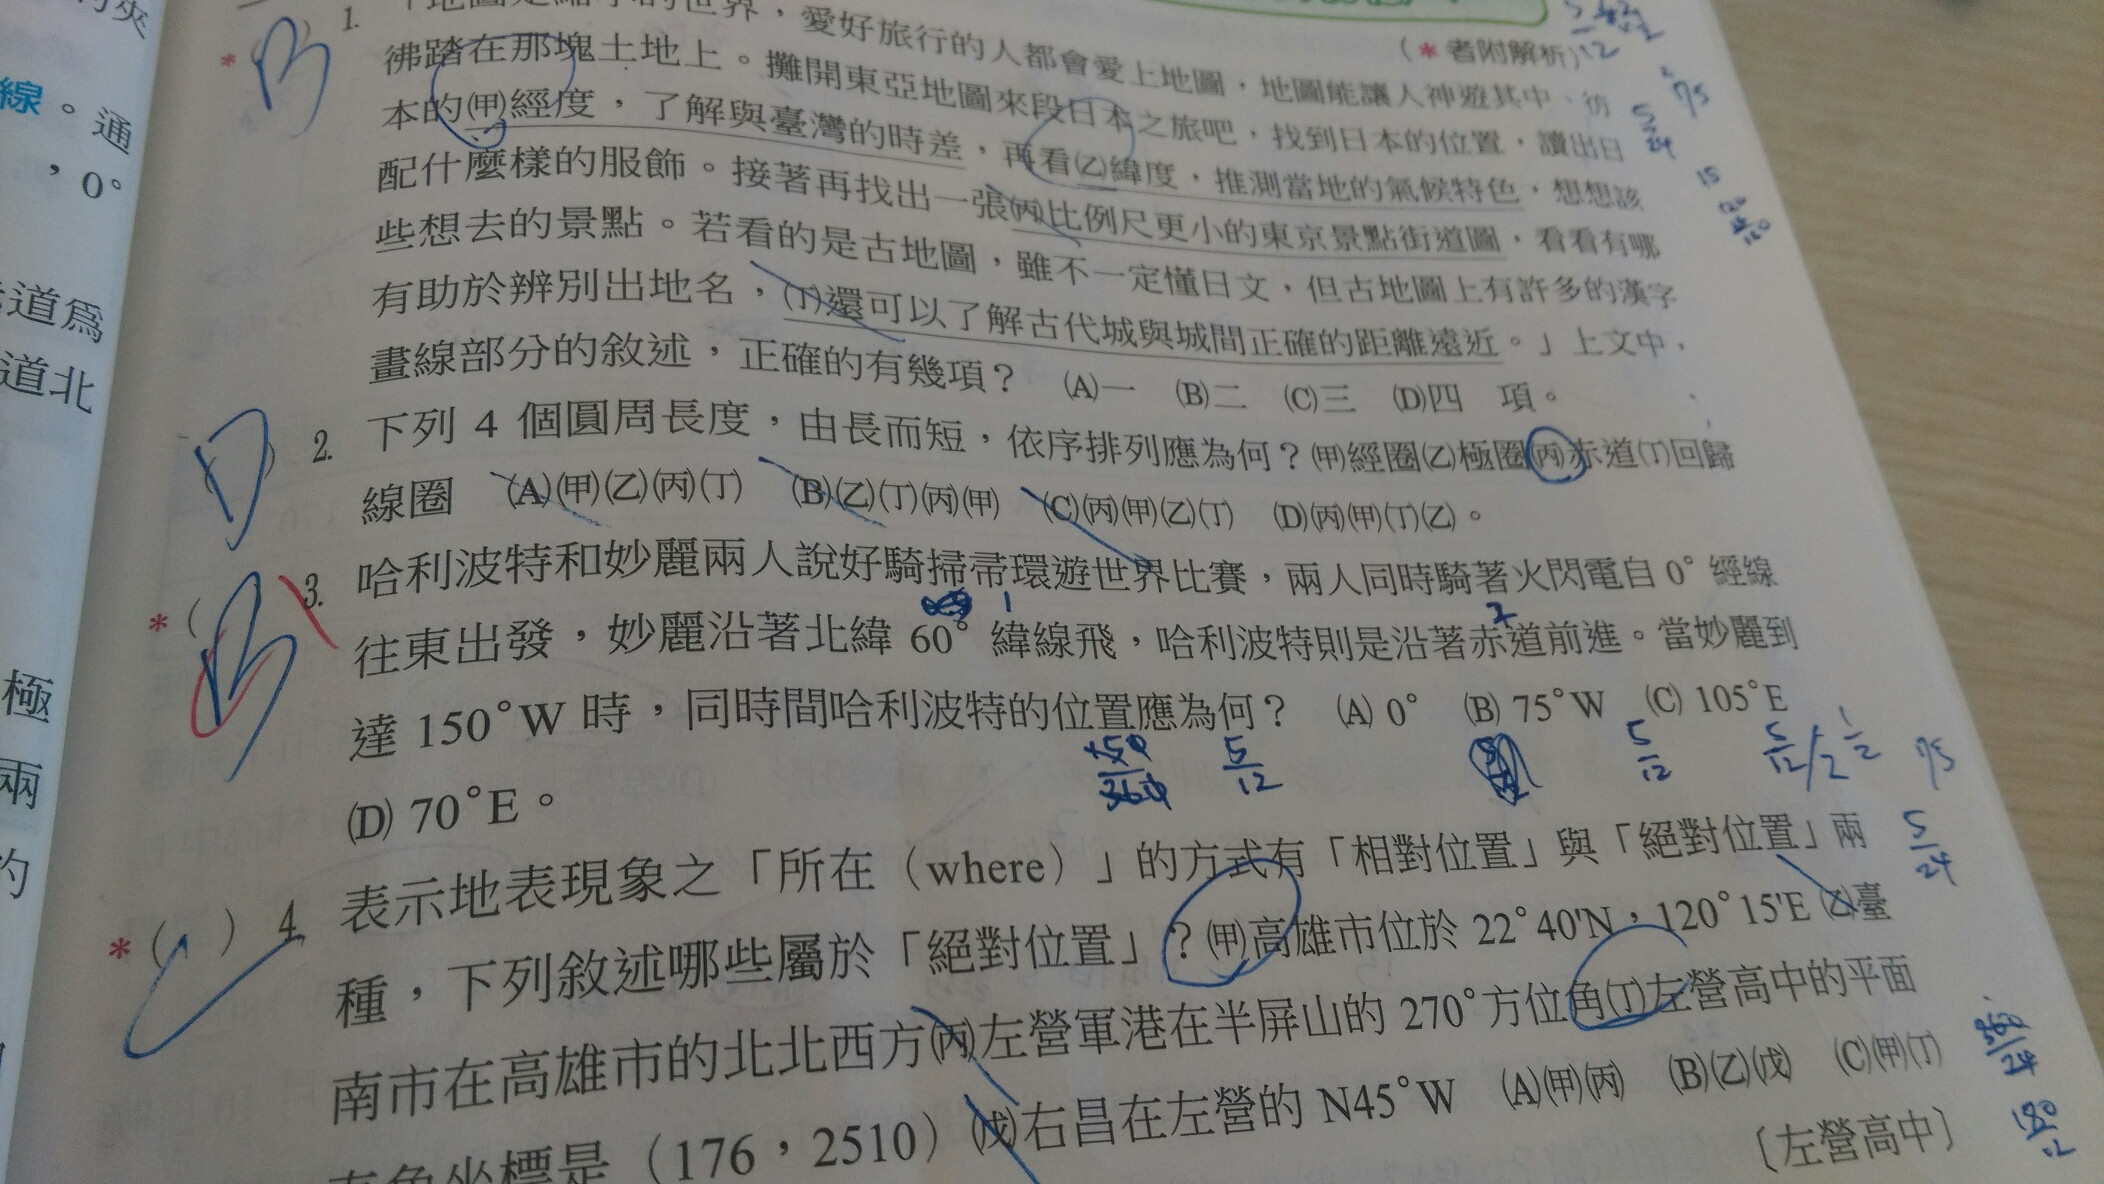 夾
線。通
，0°
道爲
道北
極
兩
的
(＊者附解析)
＊( B ) 1. 「地圖是縮小的世界，愛好旅行的人都會愛上地圖，地圖能讓人神遊其中、彷
彿踏在那塊土地上。攤開東亞地圖來段日本之旅吧，找到日本的位置，讀出日
本的(甲)經度，了解與臺灣的時差，再看(乙)緯度，推測當地的氣候特色，想想該
配什麼樣的服飾。接著再找出一張(丙)比例尺更小的東京景點街道圖，看看有哪
些想去的景點。若看的是古地圖，雖不一定懂日文，但古地圖上有許多的漢字
有助於辨別出地名，(丁)還可以了解古代城與城間正確的距離遠近。」上文中，
畫線部分的敘述，正確的有幾項？ (A)一 (B)二 (C)三 (D)四 項。
( D ) 2. 下列 4 個圓周長度，由長而短，依序排列應為何？(甲)經圈(乙)極圈(丙)赤道(丁)回歸
線圈 (A)(甲)(乙)(丙)(丁) (B)(乙)(丁)(丙)(甲) (C)(丙)(甲)(乙)(丁) (D)(丙)(甲)(丁)(乙)。
＊( B ) 3. 哈利波特和妙麗兩人說好騎掃帚環遊世界比賽，兩人同時騎著火閃電自 0° 經線
1 2
往東出發，妙麗沿著北緯 60° 緯線飛，哈利波特則是沿著赤道前進。當妙麗到
達 150°W 時，同時間哈利波特的位置應為何？ (A) 0° (B) 75°W (C) 105°E
150/360 5/12 5/12 5/12/2 1/2 75
(D) 70°E。
5/24
＊( ) 4. 表示地表現象之「所在（where）」的方式有「相對位置」與「絕對位置」兩
種，下列敘述哪些屬於「絕對位置」？(甲)高雄市位於 22°40'N，120°15'E (乙)臺
南市在高雄市的北北西方(丙)左營軍港在半屏山的 270°方位角(丁)左營高中的平面
直角坐標是（176，2510）(戊)右昌在左營的 N45°W (A)(甲)(丙) (B)(乙)(戊) (C)(甲)(丁)
〔左營高中〕
5/12
75
5/24
15
360/24
180/12